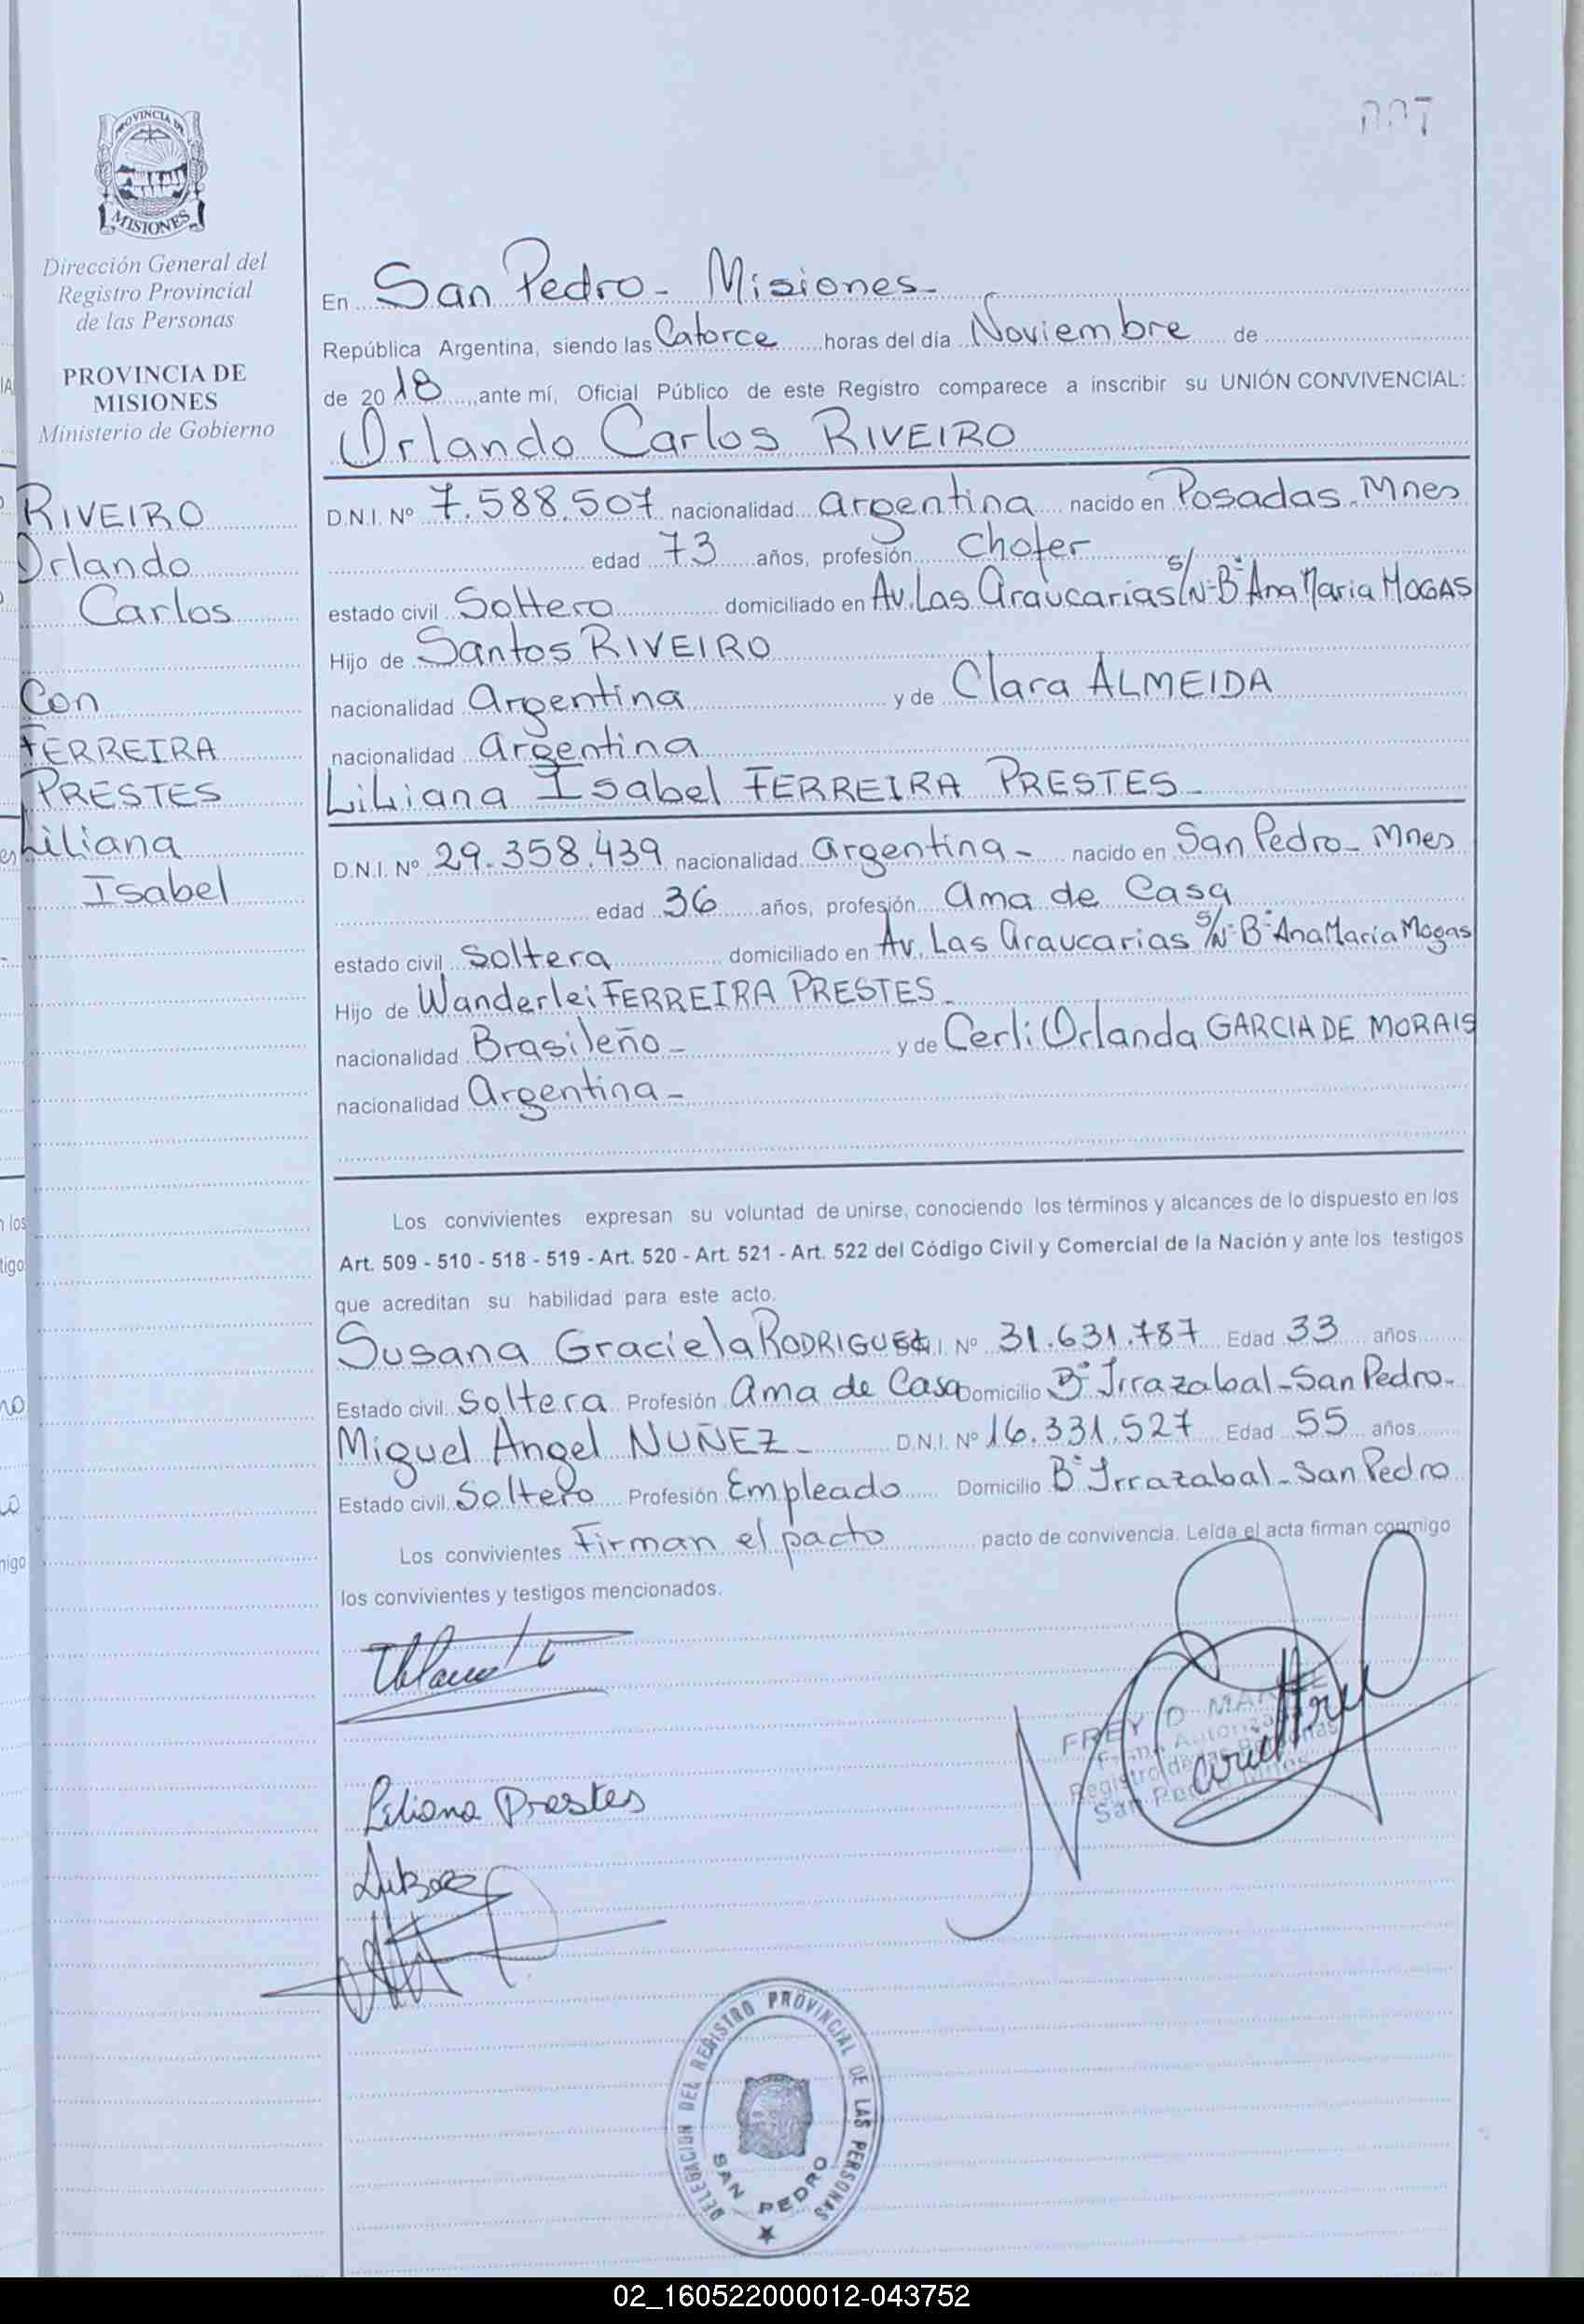 PROVINCIA DE
MISIONES
Dirección General del
Registro Provincial
de las Personas
PROVINCIA DE
MISIONES
Ministerio de Gobierno
RIVEIRO
Orlando
Carlos
Con
FERREIRA
PRESTES
Liliana
Isabel
En San Pedro - Misiones -
República Argentina, siendo las Catorce horas del día Noviembre de
de 2018, ante mí, Oficial Público de este Registro comparece a inscribir su UNIÓN CONVIVENCIAL:
Orlando Carlos RIVEIRO
D.N.I. Nº 7.588.507 nacionalidad argentina nacido en Posadas - Mnes
edad 73 años, profesión chofer
estado civil Soltero domiciliado en Av. Las Araucarias S/N - Bº Ana Maria MOGAS
Hijo de Santos RIVEIRO
nacionalidad Argentina y de Clara ALMEIDA
nacionalidad argentina
Liliana Isabel FERREIRA PRESTES -
D.N.I. Nº 29.358.439 nacionalidad argentina - nacido en San Pedro - Mnes
edad 36 años, profesión ama de Casa
estado civil Soltera domiciliado en Av. Las Araucarias S/N - Bº Ana María Mogas
Hijo de Wanderlei FERREIRA PRESTES -
nacionalidad Brasileño - y de Cerli Orlanda GARCIA DE MORAIS
nacionalidad Argentina -
Los convivientes expresan su voluntad de unirse, conociendo los términos y alcances de lo dispuesto en los
Art. 509 - 510 - 518 - 519 - Art. 520 - Art. 521 - Art. 522 del Código Civil y Comercial de la Nación y ante los testigos
que acreditan su habilidad para este acto.
Susana Graciela RODRIGUEZ D.N.I. Nº 31.631.787 Edad 33 años
Estado civil Soltera Profesión Ama de Casa Domicilio Bº Irrazabal - San Pedro -
Miguel Angel NUÑEZ - D.N.I. Nº 16.331.527 Edad 55 años
Estado civil Soltero Profesión Empleado Domicilio Bº Irrazabal - San Pedro
Los convivientes Firman el pacto pacto de convivencia. Leída el acta firman conmigo
los convivientes y testigos mencionados.
Liliana Prestes
FREY D.
Firma Autorizada
Registro de las Personas
San Pedro Mnes
DELEGACION DEL REGISTRO PROVINCIAL DE LAS PERSONAS
SAN PEDRO
02_160522000012-043752